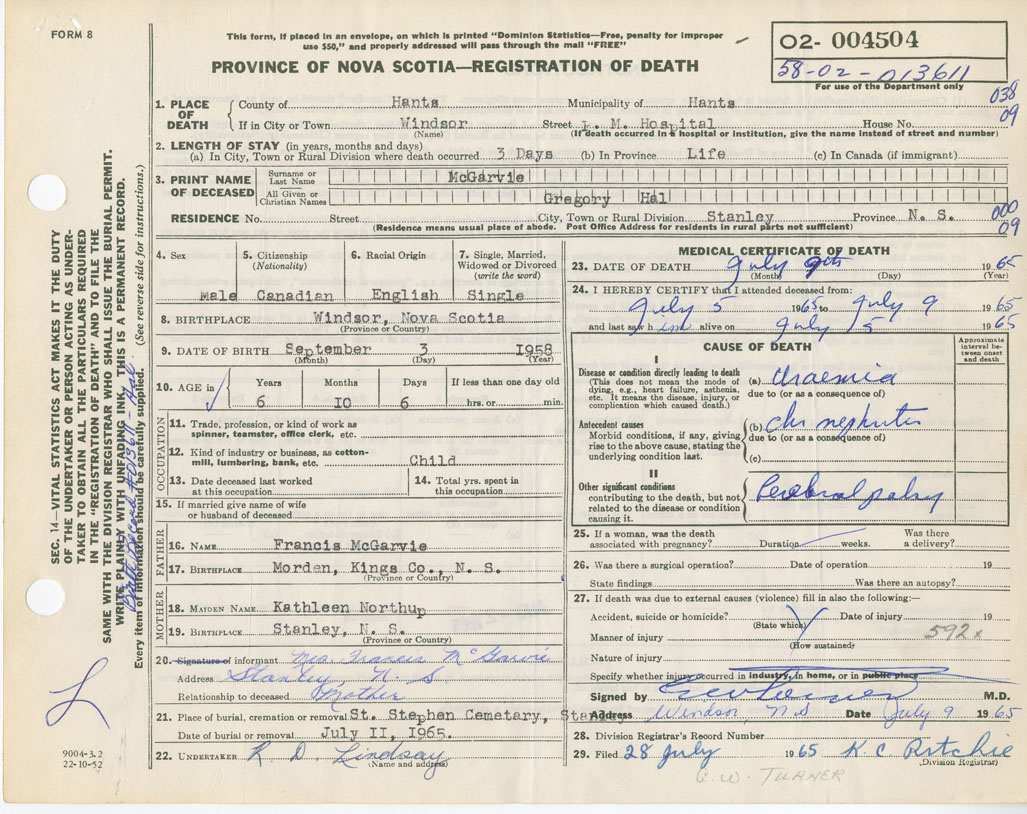 FORM 8
This form, if placed in an envelope, on which is printed "Dominion Statistics—Free, penalty for improper
use $50," and properly addressed will pass through the mail "FREE"
02- 004504
58-02-013611
For use of the Department only
PROVINCE OF NOVA SCOTIA—REGISTRATION OF DEATH
1. PLACE OF DEATH County of Hants Municipality of Hants 038
If in City or Town Windsor Street L. M. Hospital House No. 09
(Name) (If death occurred in a hospital or institution, give the name instead of street and number)
2. LENGTH OF STAY (in years, months and days)
(a) In City, Town or Rural Division where death occurred 3 Days (b) In Province Life (c) In Canada (if immigrant)
3. PRINT NAME OF DECEASED
Surname or Last Name McGarvie
All Given or Christian Names Gregory Hal
RESIDENCE No. Street City, Town or Rural Division Stanley Province N. S. 000
(Residence means usual place of abode. Post Office Address for residents in rural parts not sufficient) 09
4. Sex 5. Citizenship (Nationality) 6. Racial Origin 7. Single, Married, Widowed or Divorced (write the word)
Male Canadian English Single
8. BIRTHPLACE Windsor, Nova Scotia
(Province or Country)
9. DATE OF BIRTH September 3 1958
(Month) (Day) (Year)
10. AGE in Years Months Days If less than one day old
6 IO 6 hrs. or min.
OCCUPATION
11. Trade, profession, or kind of work as
spinner, teamster, office clerk, etc.
12. Kind of industry or business, as cotton-
mill, lumbering, bank, etc. Child
13. Date deceased last worked
at this occupation
14. Total yrs. spent in
this occupation
15. If married give name of wife
or husband of deceased
FATHER
16. NAME Francis McGarvie
17. BIRTHPLACE Morden, Kings Co., N. S.
(Province or Country)
MOTHER
18. MAIDEN NAME Kathleen Northup
19. BIRTHPLACE Stanley, N. S.
(Province or Country)
20. Signature of informant Mrs. Francis McGarvie
Address Stanley N. S
Relationship to deceased Mother
21. Place of burial, cremation or removal St. Stephen Cemetary, Stanley
Date of burial or removal July II, 1965.
22. UNDERTAKER R D. Lindsay
(Name and address)
MEDICAL CERTIFICATE OF DEATH
23. DATE OF DEATH July 9th 1965
(Month) (Day) (Year)
24. I HEREBY CERTIFY that I attended deceased from:
July 5 1965 to July 9 1965
and last saw him alive on July 5 1965
CAUSE OF DEATH
Approximate
interval be-
tween onset
and death
I
Disease or condition directly leading to death
(This does not mean the mode of
dying, e.g., heart failure, asthenia,
etc. It means the disease, injury, or
complication which caused death.)
(a) Uraemia
due to (or as a consequence of)
Antecedent causes
Morbid conditions, if any, giving
rise to the above cause, stating the
underlying condition last.
(b) Chr nephritis
due to (or as a consequence of)
(c)
II
Other significant conditions
contributing to the death, but not
related to the disease or condition
causing it.
Cerebral palsy
25. If a woman, was the death
associated with pregnancy? Duration weeks. Was there
a delivery?
26. Was there a surgical operation? Date of operation 19
State findings Was there an autopsy?
27. If death was due to external causes (violence) fill in also the following:—
Accident, suicide or homicide? Date of injury 19
(State which)
Manner of injury 592x
(How sustained)
Nature of injury
Specify whether injury occurred in industry, in home, or in public place
Signed by M.D.
Address Windsor, N.S Date July 9 1965
28. Division Registrar's Record Number
29. Filed 28 July 1965 K. C Ritchie
(Division Registrar)
G. W. TURNER
SEC. 14—VITAL STATISTICS ACT MAKES IT THE DUTY
OF THE UNDERTAKER OR PERSON ACTING AS UNDER-
TAKER TO OBTAIN ALL THE PARTICULARS REQUIRED
IN THE "REGISTRATION OF DEATH" AND TO FILE THE
SAME WITH THE DIVISION REGISTRAR WHO SHALL ISSUE THE BURIAL PERMIT.
WRITE PLAINLY WITH UNFADING INK, THIS IS A PERMANENT RECORD.
Birth Record #013611 - Hal
Every item of information should be carefully supplied. (See reverse side for instructions.)
9004-3.2
22-10-52